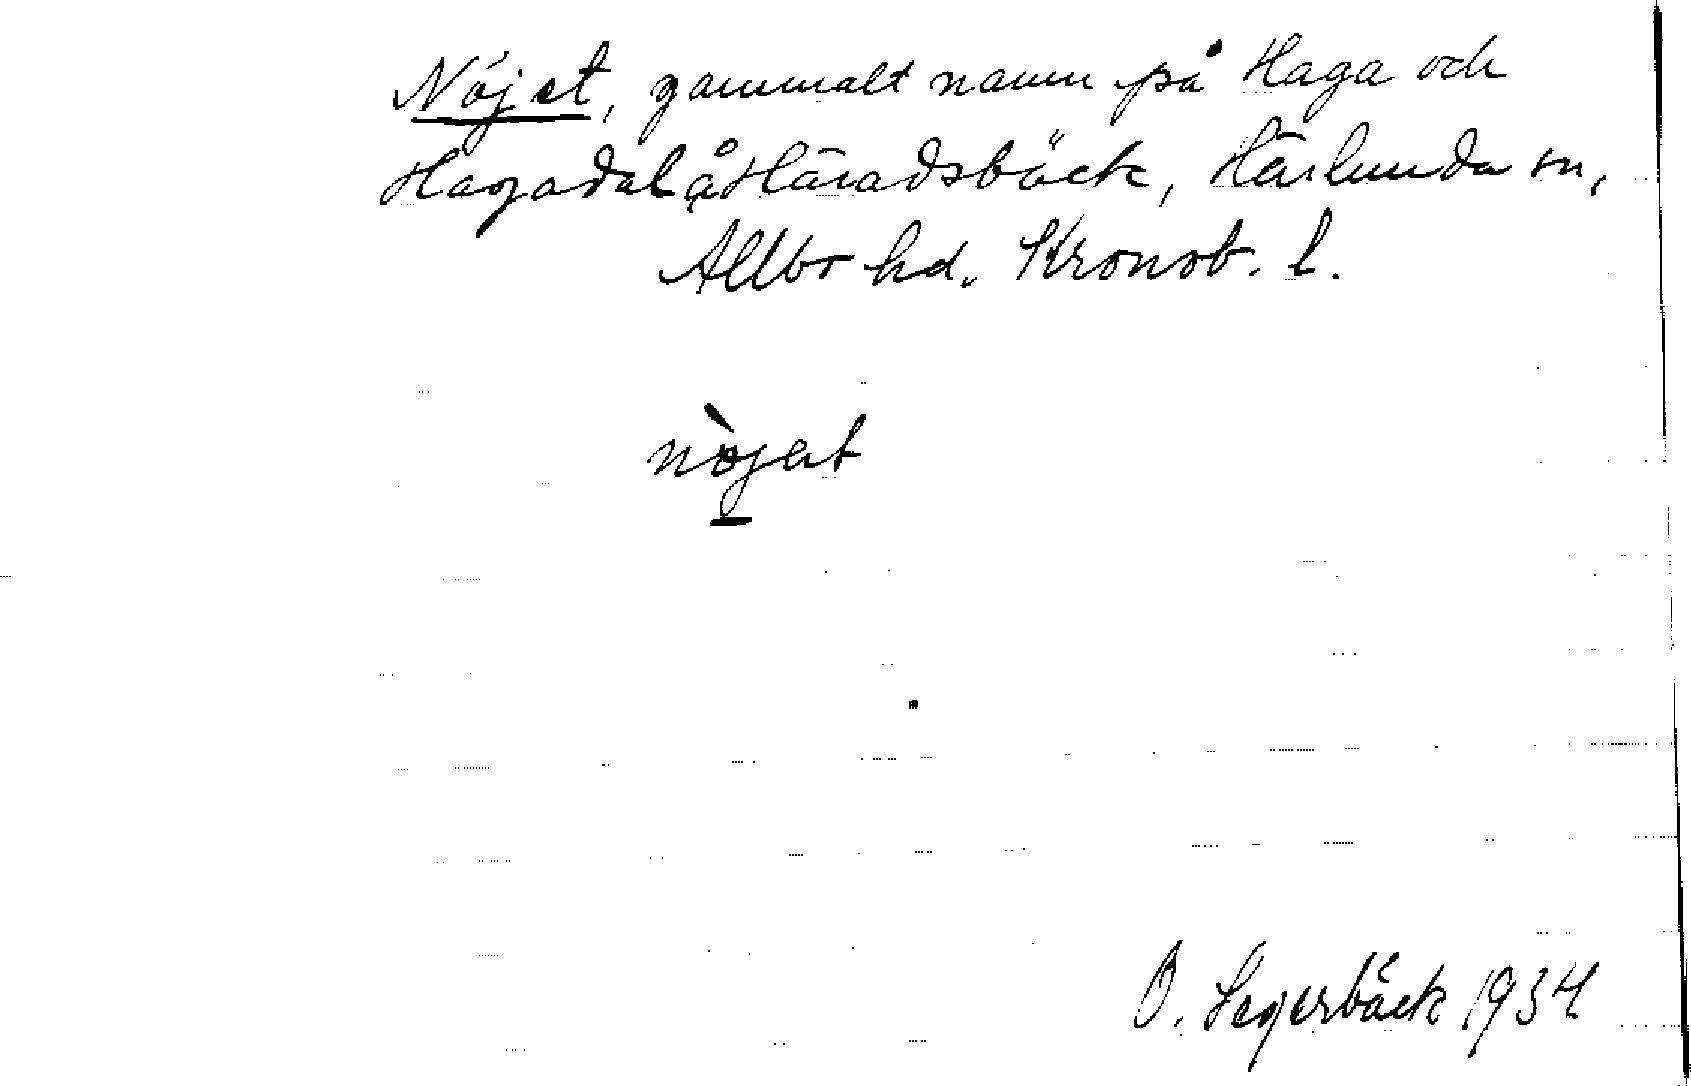 Nöjet, gammalt namn på Haga och
Hagadal å Häradsbäck, Härlunda sn,
Allbo hd. Kronob. l.
nòjet
B. Segerbäck 1934